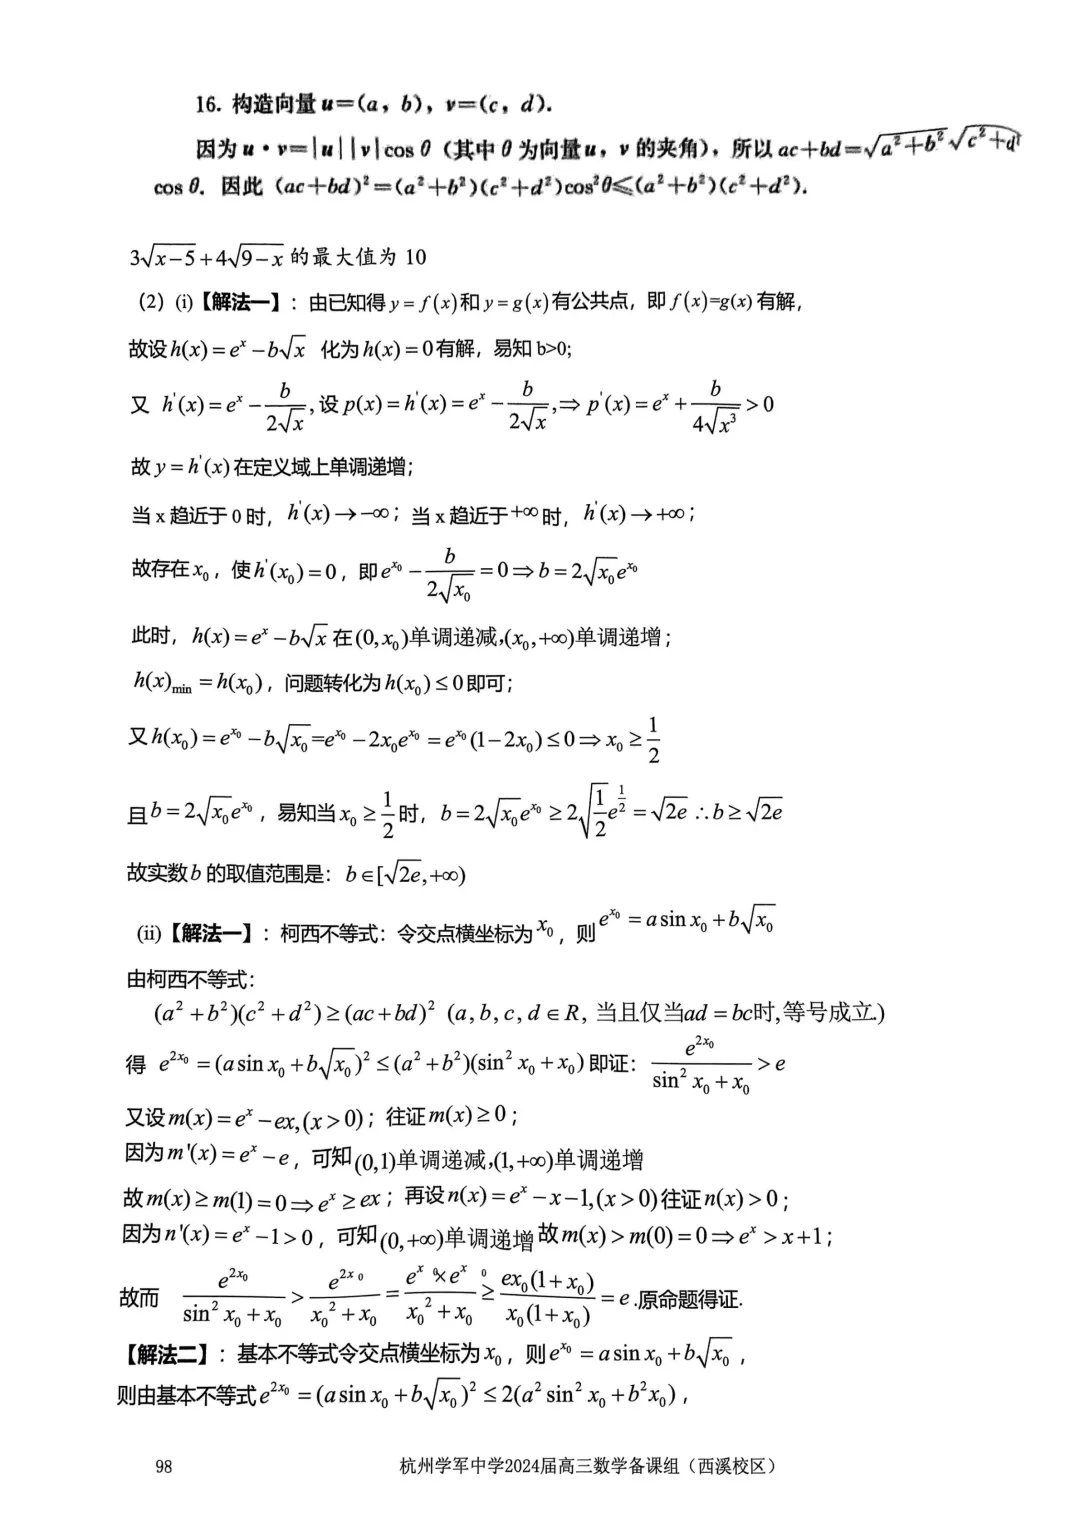 16. 构造向量 u=(a, b), v=(c, d).
因为 u·v=|u||v|cos θ (其中 θ 为向量 u, v 的夹角), 所以 ac+bd=√(a²+b²)√(c²+d²)
cos θ. 因此 (ac+bd)²=(a²+b²)(c²+d²)cos²θ≤(a²+b²)(c²+d²).
3√(x-5)+4√(9-x) 的最大值为 10
(2) (i)【解法一】: 由已知得 y=f(x) 和 y=g(x) 有公共点, 即 f(x)=g(x) 有解,
故设 h(x)=e^x-b√x 化为 h(x)=0 有解, 易知 b>0;
又 h'(x)=e^x-b/(2√x), 设 p(x)=h'(x)=e^x-b/(2√x), ⇒ p'(x)=e^x+b/(4√(x³))>0
故 y=h'(x) 在定义域上单调递增;
当 x 趋近于 0 时, h'(x)→-∞; 当 x 趋近于+∞时, h'(x)→+∞;
故存在 x₀, 使 h'(x₀)=0, 即 e^(x₀)-b/(2√x₀)=0⇒b=2√x₀e^(x₀)
此时, h(x)=e^x-b√x 在 (0,x₀)单调递减,(x₀,+∞)单调递增;
h(x)min=h(x₀), 问题转化为 h(x₀)≤0 即可;
又 h(x₀)=e^(x₀)-b√x₀=e^(x₀)-2x₀e^(x₀)=e^(x₀)(1-2x₀)≤0⇒x₀≥1/2
且 b=2√x₀e^(x₀), 易知当 x₀≥1/2 时, b=2√x₀e^(x₀)≥2√(1/2)e^(1/2)=√(2e) ∴b≥√(2e)
故实数 b 的取值范围是: b∈[√(2e),+∞)
(ii)【解法一】: 柯西不等式: 令交点横坐标为 x₀, 则 e^(x₀)=a sin x₀+b√x₀
由柯西不等式:
(a²+b²)(c²+d²)≥(ac+bd)² (a,b,c,d∈R, 当且仅当ad=bc时,等号成立.)
得 e^(2x₀)=(a sin x₀+b√x₀)²≤(a²+b²)(sin² x₀+x₀) 即证: e^(2x₀)/(sin² x₀+x₀)>e
又设 m(x)=e^x-ex,(x>0); 往证 m(x)≥0;
因为 m'(x)=e^x-e, 可知 (0,1)单调递减,(1,+∞)单调递增
故 m(x)≥m(1)=0⇒e^x≥ex; 再设 n(x)=e^x-x-1,(x>0) 往证 n(x)>0;
因为 n'(x)=e^x-1>0, 可知 (0,+∞)单调递增 故 m(x)>m(0)=0⇒e^x>x+1;
故而 e^(2x₀)/(sin² x₀+x₀)>e^(2x₀)/(x₀²+x₀)=(e^(x₀)×e^(x₀))/(x₀²+x₀)≥ex₀(1+x₀)/(x₀(1+x₀))=e.原命题得证.
【解法二】: 基本不等式令交点横坐标为 x₀, 则 e^(x₀)=a sin x₀+b√x₀,
则由基本不等式 e^(2x₀)=(a sin x₀+b√x₀)²≤2(a² sin² x₀+b²x₀),
98 杭州学军中学2024届高三数学备课组（西溪校区）